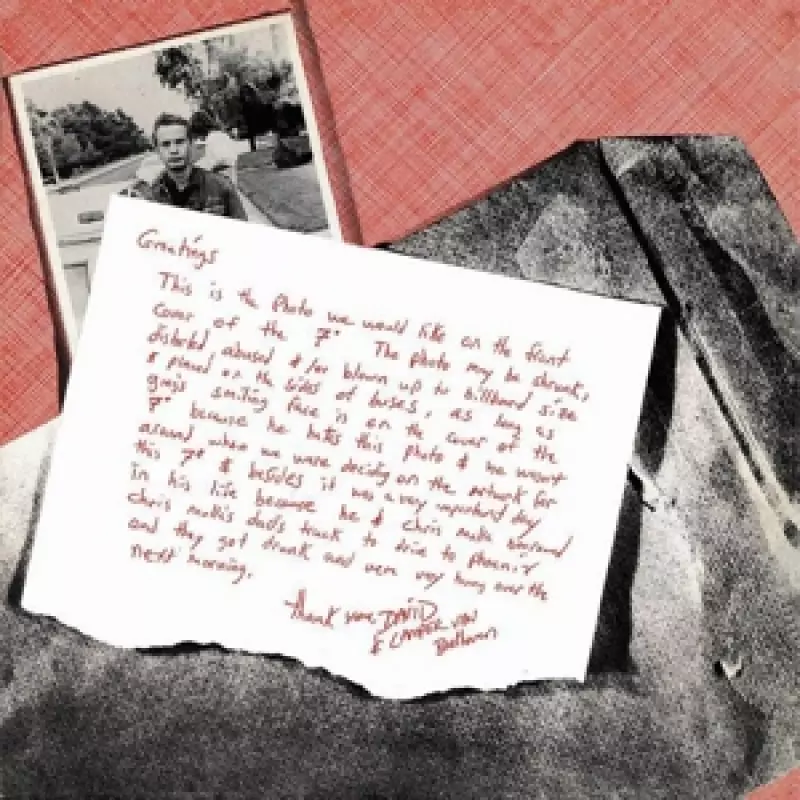 Greetings
This is the Photo we would like on the front
cover of the 7" The photo may be shrunk,
abused &/or blown up to billboard size
& placed on the sides of buses, as long as
smiling face is on the cover of the
7" because he hates this photo & we
around when we were deciding on the artwork for
this 7" & besides it was a very important day
in his life because he & Chris
Chris dad's truck to drive to Phoenix
and they got drunk and were very hung over the
next morning.
thank you, DAVID
& CAMPER VAN
Beethoven